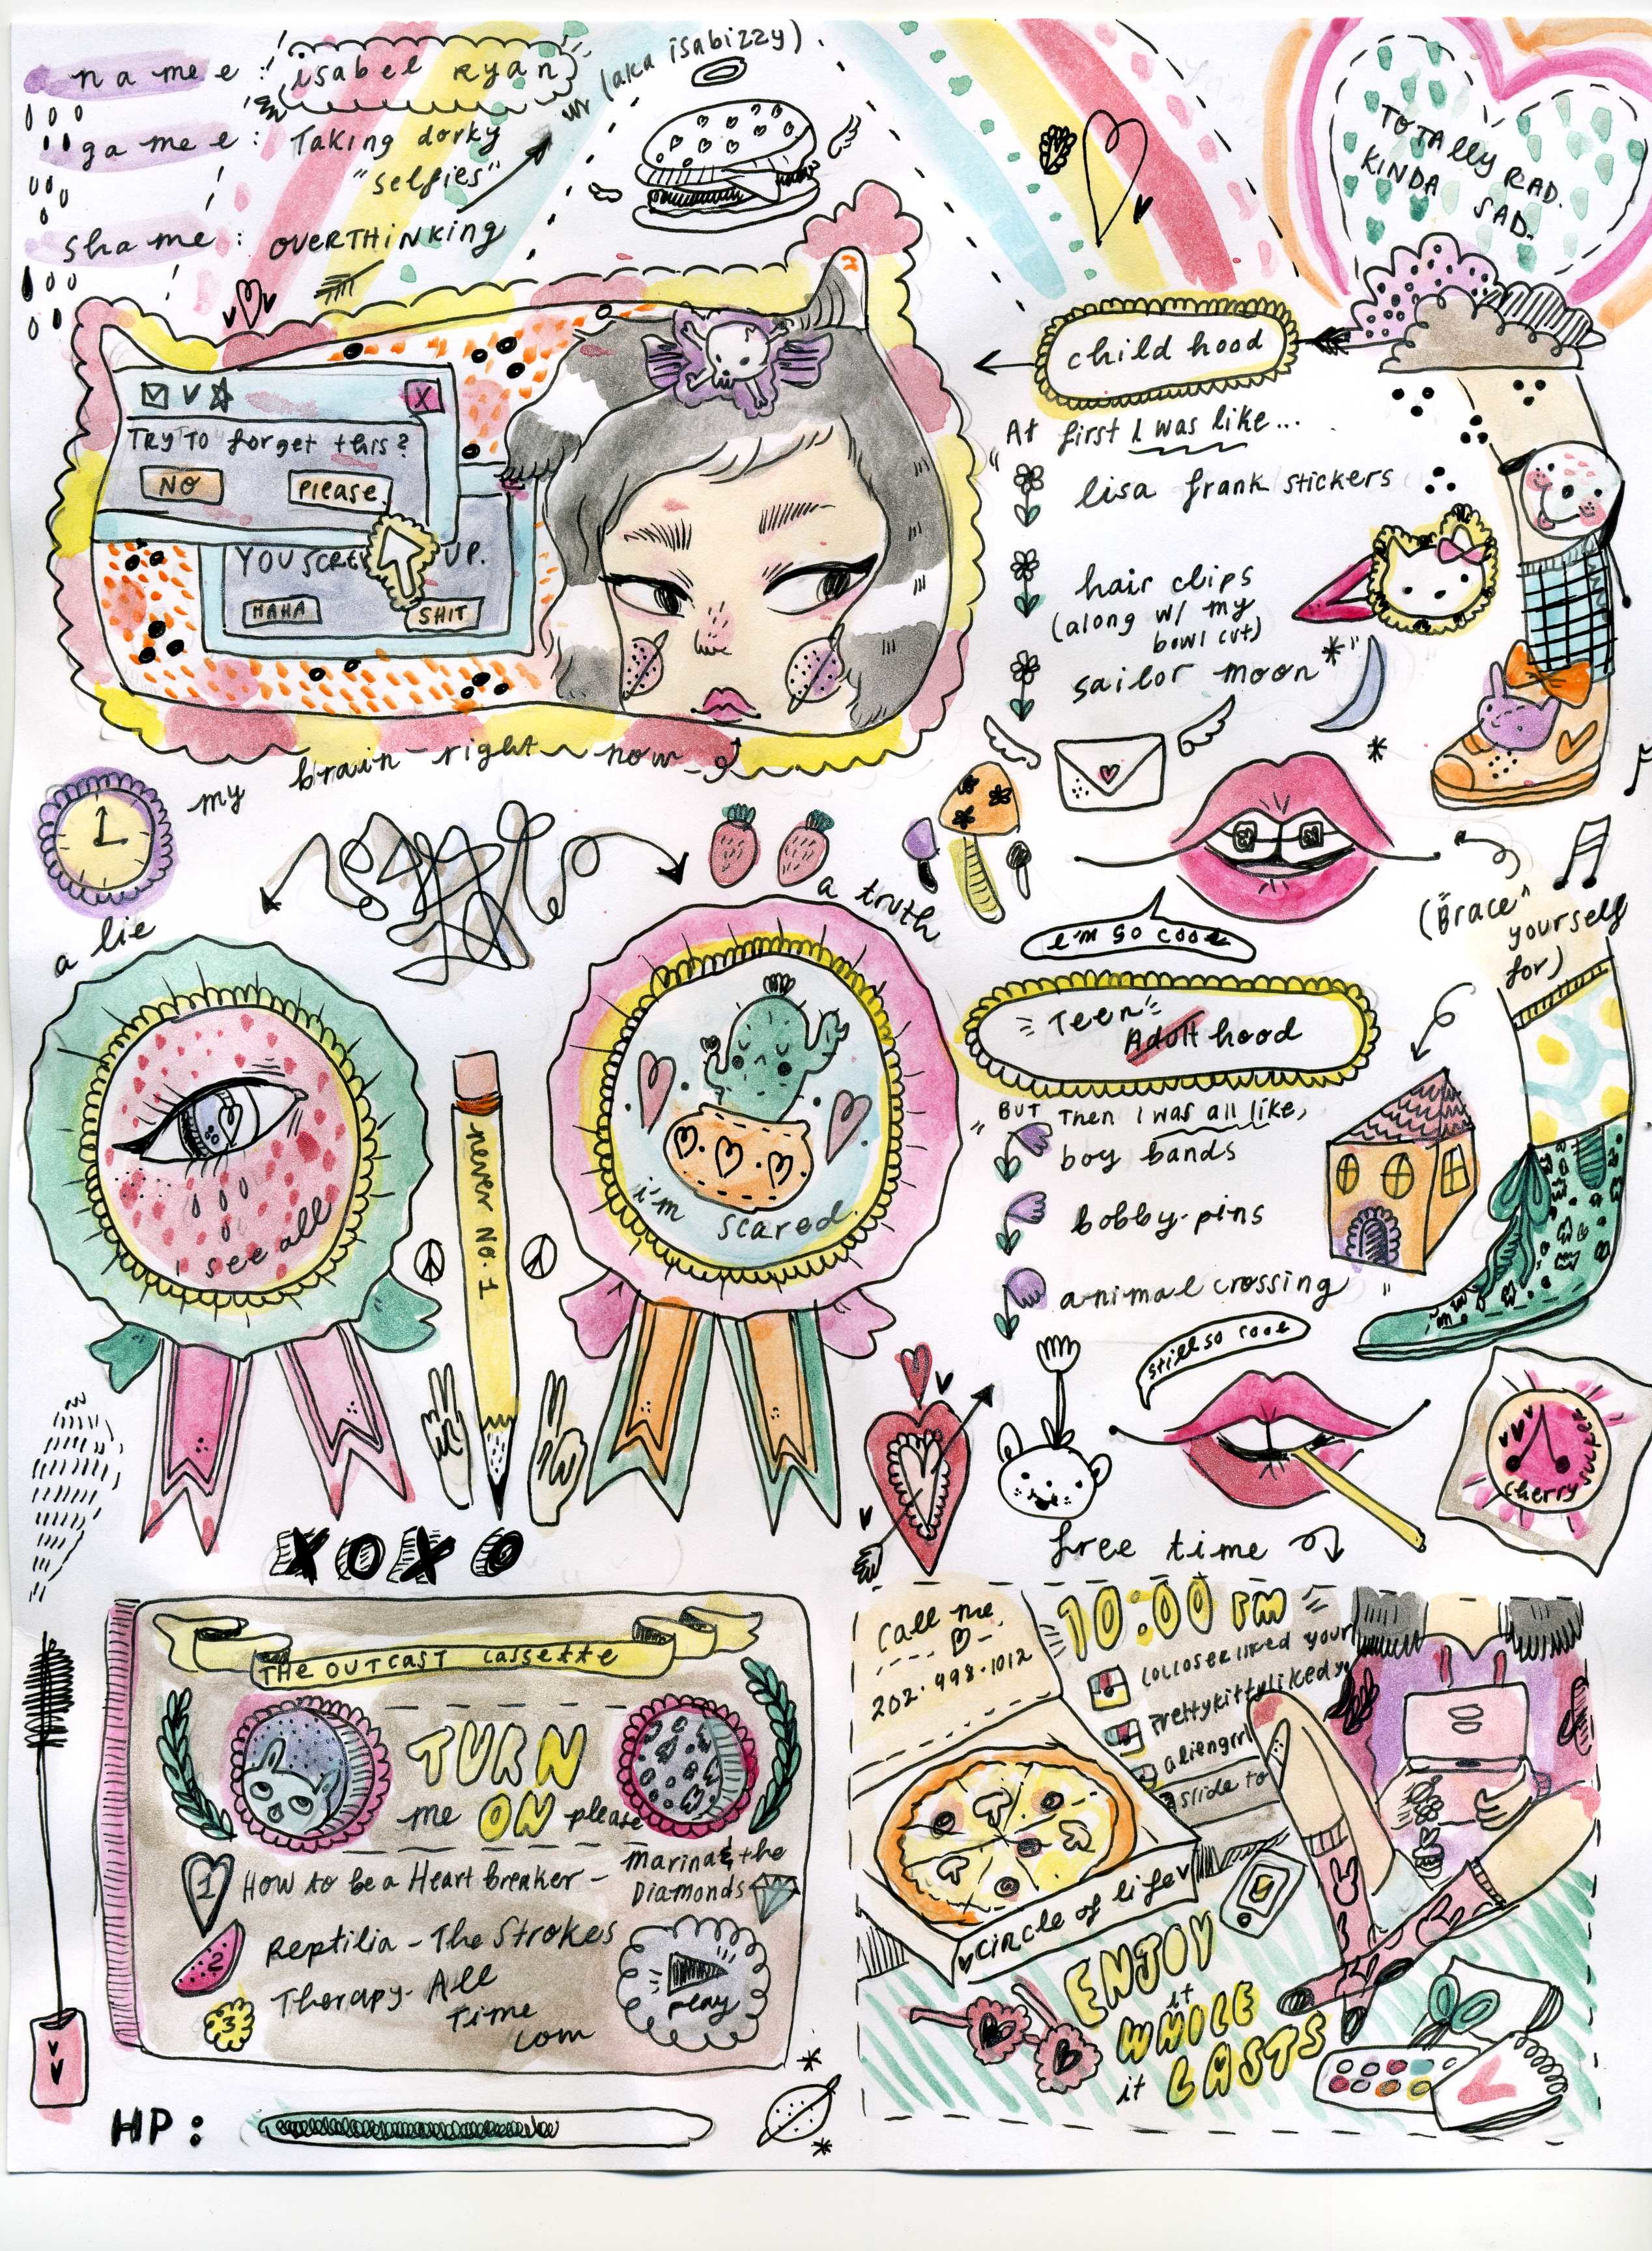 name: isabel ryan
(aka isabizzy)
game: Taking dorky
"selfies"
shame: OVERTHINKING
TOTAlly RAD.
KINDA SAD.
TRY TO forget this?
NO
Please
X
YOU SCREW UP.
HAHA
SHIT
my brain right now
childhood
"At first I was like...
lisa frank stickers
hair clips
(along w/ my
bowl cut)
sailor moon"
i'm so cool
("Brace"
yourself
for)
a lie
a truth
i see all
never No. 1
i'm scared.
Teen
Adult hood
"BUT Then I was all like,
boy bands
bobby-pins
animal crossing"
still so cool
cherry sucker
XOXO
free time
THE OUTCAST cassette
TURN
me ON please
1 HOW to be a Heart breaker - Marina & the
Diamonds
2 Reptilia - The Strokes
3 Therapy - All
Time
Low
play
HP:
call me
202.998.1012
10:00 PM
lolloser liked your
prettykitty liked y
aliengrrl
slide to
circle of life
ENJOY
it
WHILE
it LASTS